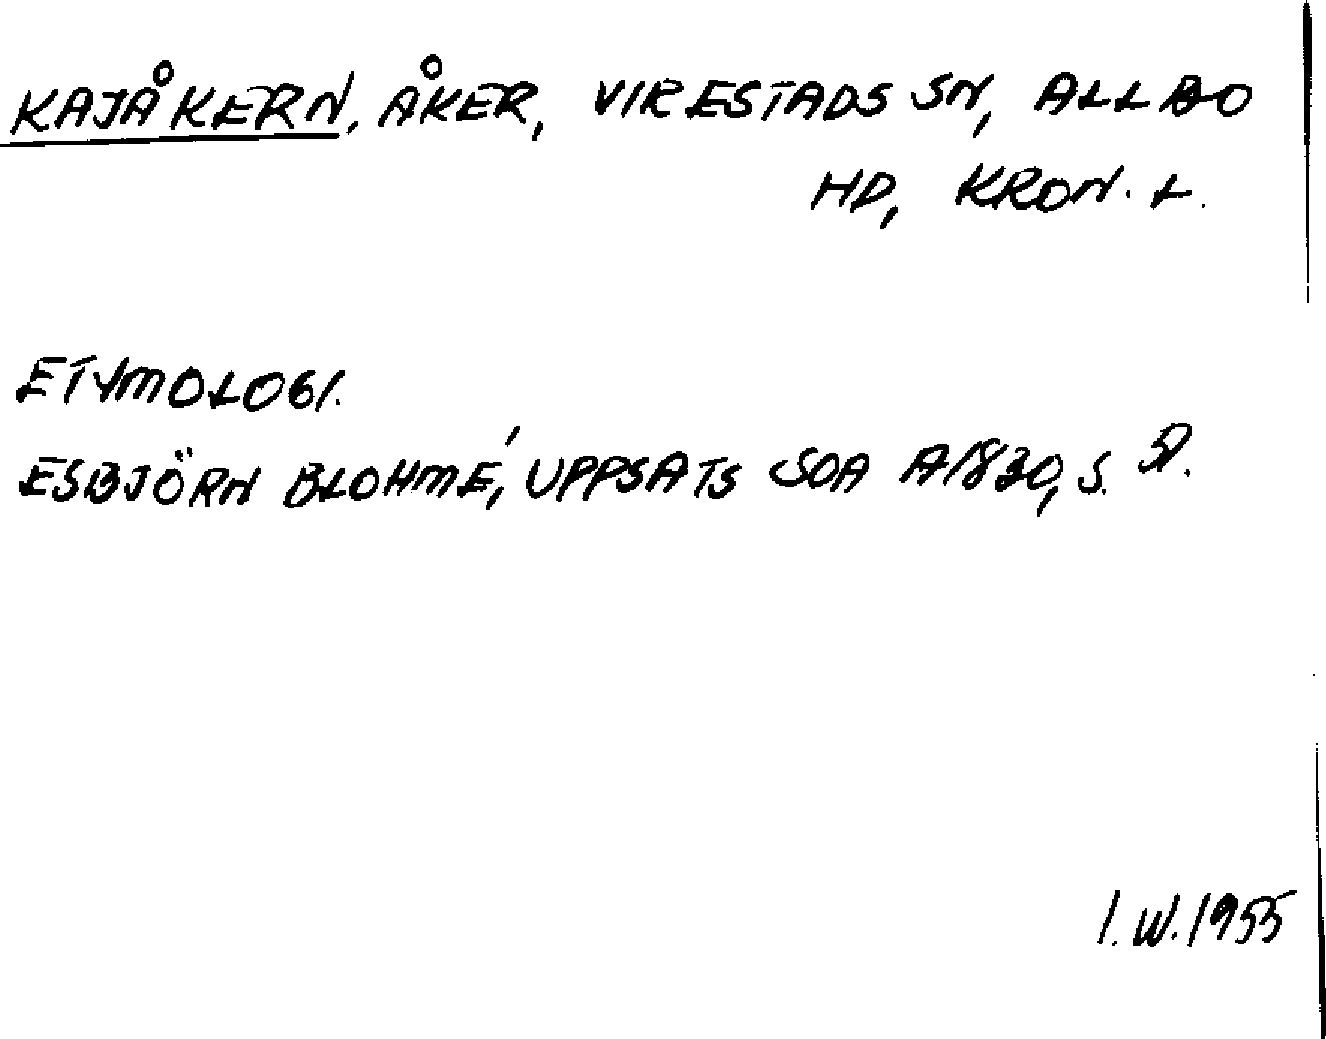 KAJÅKERN, ÅKER, VIRESTADS SN, ALLBO
HD, KRON. L.
ETYMOLOGI.
ESBJÖRN BLOHMÉ, UPPSATS SOA A1830, S.
I.W.1955